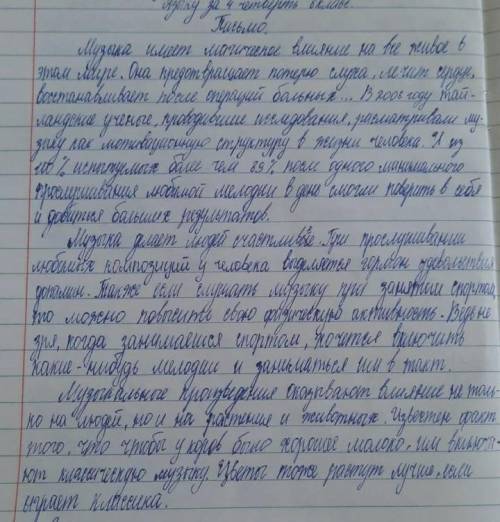 языку за 4 четверть
Письмо.
Музыка имеет магическое влияние на все живое в
этом мире. Она предотвращает потерю слуха, лечит сердце,
восстанавливает после операций больных... В 2005 году Тай-
ландские ученые, проводившие исследования, расматривали му-
зыку как мотивационную структуру в жизни человека. И из
100% испытуемых более чем 89% после одного минимального
прослушивания любимой мелодии в день смогли поверить в себя
и добиться больших результатов.
Музыка делает людей счастливее. При прослушивании
любимых композиций у человека выделяется гормон удовольствия
допамин. Также если слушать музыку при занятии спортом,
то можно повысить свою физическую активность. Ведь не
зря, когда занимаешся спортом, хочется включить
какие-нибудь мелодии и заниматься им в такт.
Музыкальные произведения оказывают влияние не толь-
ко на людей, но и на растения и животных. Известен факт
того, что чтобы у коров было хорошее молоко, им включа-
ют классическую музыку. Цветы тоже растут лучше, если
играет классика.